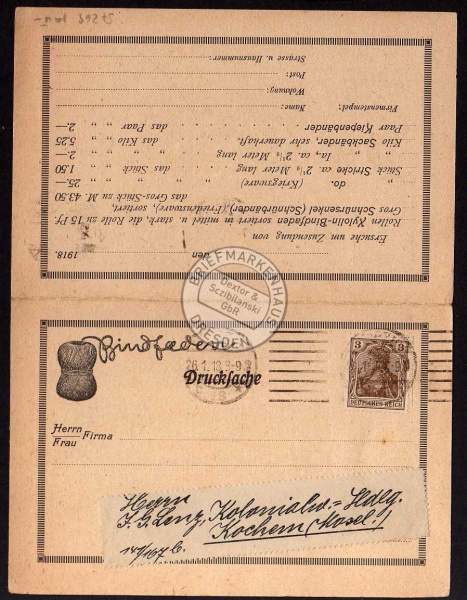 den 1918.
Ersuche um Zusendung von
Rollen Xylolin-Bindfaden sortiert in mittel u. stark, die Rolle zu 15 Pf.
Gros Schnürsenkel (Schnürbänder), (Friedensware), sortiert,
das Gros-Stück zu M. 43.50
„ do. (Kriegsware) „ „ „ 25.—
Stück Stricke ca. 2½ Meter lang das Stück „ „ 1.50
„ „ Ia, ca. 2½ Meter lang „ „ „ 2.—
Kilo Sackbänder, sehr dauerhaft. das Kilo „ „ 5.25
Paar Kiepenbänder das Paar „ „ 2.—
Firmenstempel: Name:
Wohnung
Post:
Strasse u. Hausnummer:
BRIEFMARKENHAUS
Dextor &
Sczibilanski
GbR
DRESDEN
Bindfaden
26.1.18. 8-9
Drucksache
3 3
DEUTSCHES REICH
Herrn
Frau Firma
Herrn
F. G. Lenz, Kolonialw.= Hdlg.
Kochem (Mosel!)